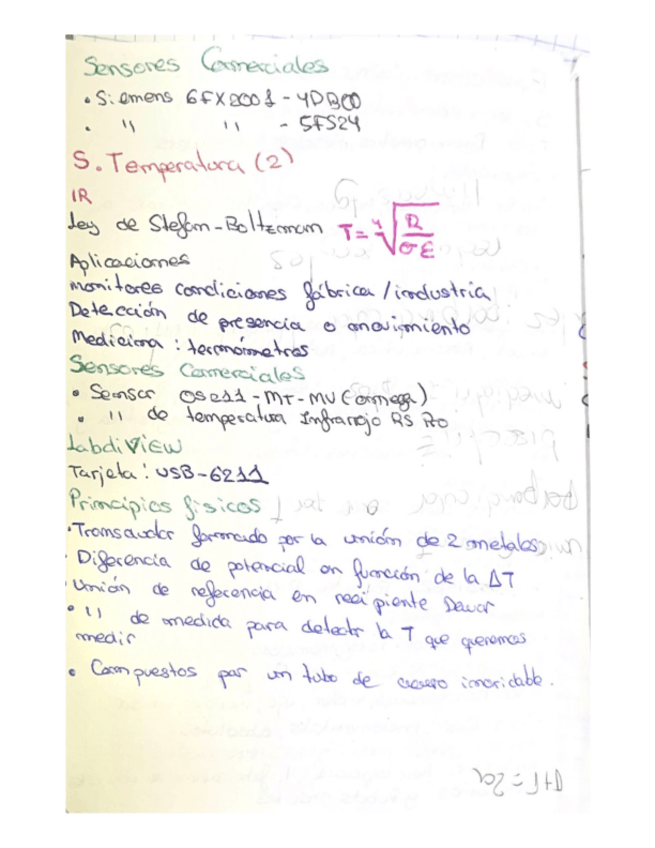 Sensores Comerciales
• Siemens 6FX2001-4DB00
• " " - 5FS24
S. Temperatura (2)
IR
Ley de Stefan-Boltzmann T = ⁴√(R/σε)
Aplicaciones
monitoreo condiciones fábrica / industria
Detección de presencia o movimiento
Medicina : termómetros
Sensores Comerciales
• Sensor OS211-MT-MV (omega)
• " de temperatura Infrarrojo RS
LabdiVIEW
Tarjeta: USB-6211
Principios físicos
• Transductor formado por la unión de 2 metales
· Diferencia de potencial en función de la ΔT
· Unión de referencia en recipiente Dewar
• " de medida para detectar la T que queremos
medir
• Compuestos por un tubo de acero inoxidable.